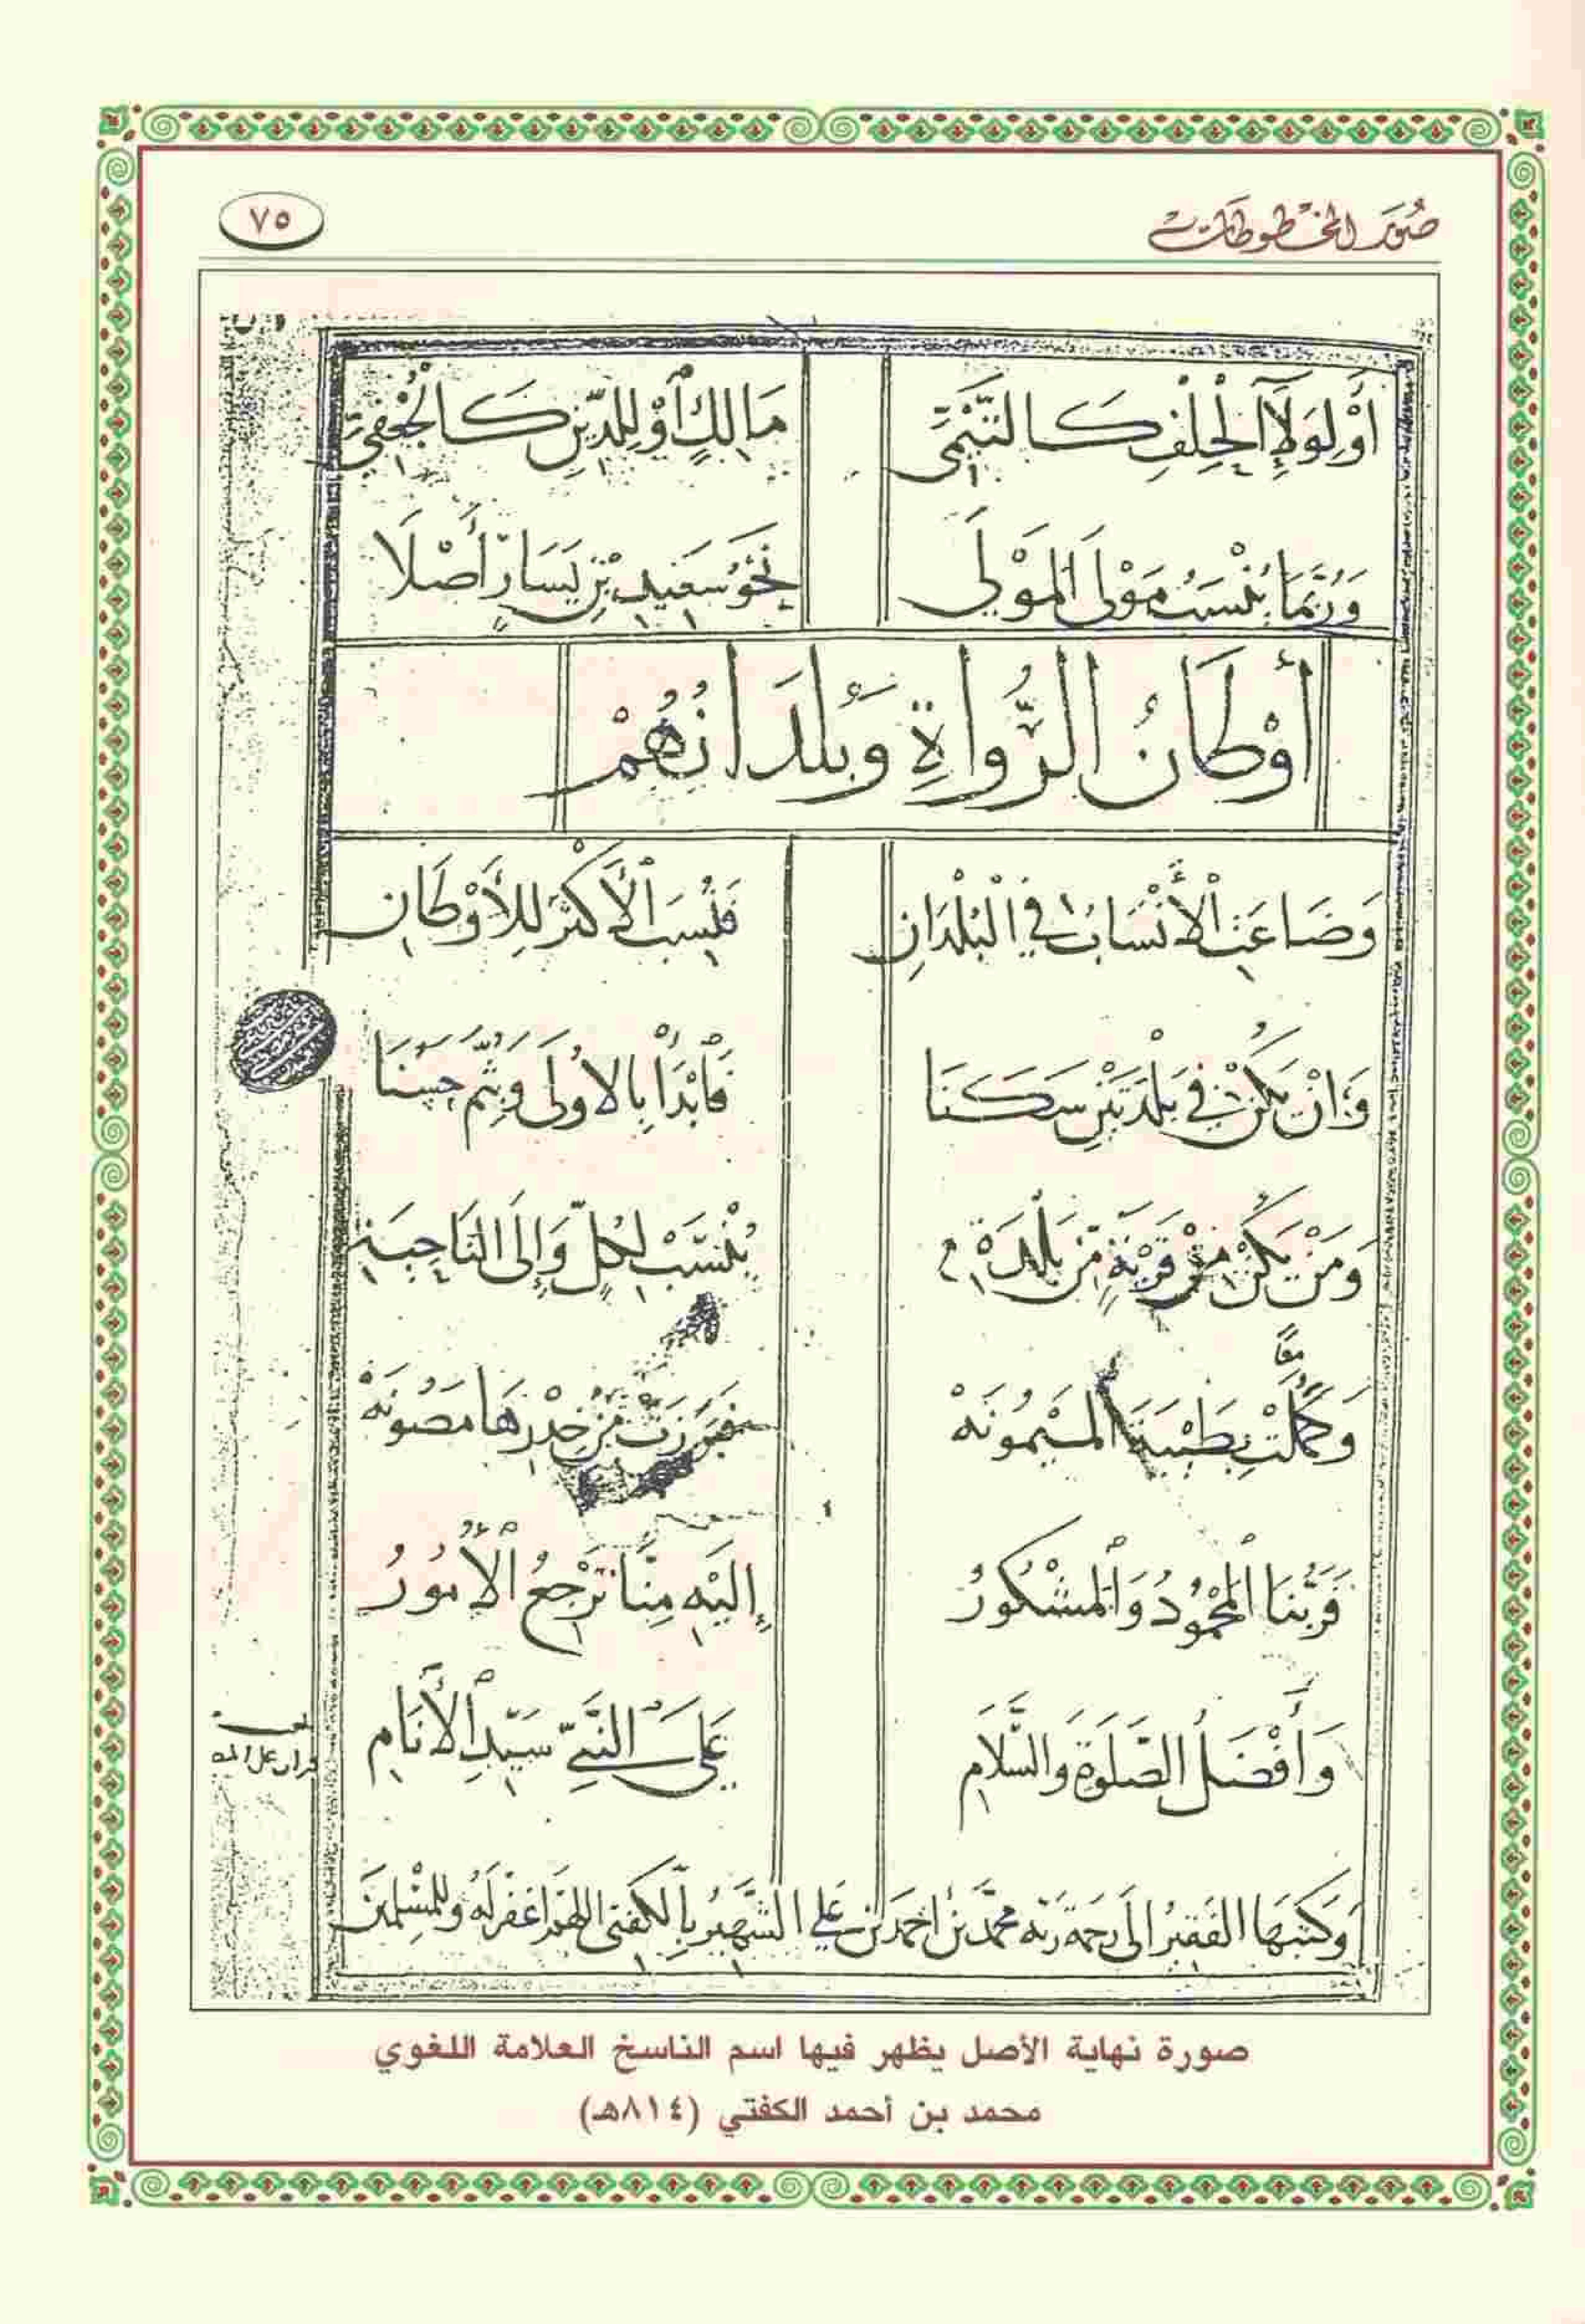 صُوَر المَخْطُوطَات
٧٥
أَوْ لِوَلَاءِ الْحِلْفِ كَالتَّيْمِيِّ مَالِكٍ أَوْ لِلدِّينِ كَالْجُعْفِيِّ
وَرُبَّمَا يُنْسَبُ مَوْلَى الْمَوْلَى نَحْوُ سَعِيدِ بْنِ يَسَارٍ أَصْلَا
أَوْطَانُ الرُّوَاةِ وَبُلْدَانُهُمْ
وَضَاعَتِ الْأَنْسَابُ فِي الْبُلْدَانِ فَنُسِبَ الْأَكْثَرُ لِلْأَوْطَانِ
وَإِنْ يَكُنْ فِي بَلْدَتَيْنِ سَكَنَا فَابْدَأْ بِالْأُولَى وَبِثُمَّ حَسُنَا
وَمَنْ يَكُنْ مِنْ قَرْيَةٍ مِنْ بَلْدَةِ يُنْسَبْ لِكُلٍّ وَإِلَى النَّاحِيَةِ
وَكَمُلَتْ بِطَيْبَةَ الْمَيْمُونَهْ فَبَرَزَتْ مِنْ خِدْرِهَا مَصُونَهْ
معًا
فَرَبُّنَا الْمَحْمُودُ وَالْمَشْكُورُ إِلَيْهِ مِنَّا تَرْجِعُ الْأُمُورُ
وَأَفْضَلُ الصَّلَوةِ وَالسَّلَامِ عَلَى النَّبِيِّ سَيِّدِ الْأَنَامِ
وَكَتَبَهَا الْفَقِيرُ إِلَى رَحْمَةِ رَبِّهِ مُحَمَّدُ بْنُ أَحْمَدَ بْنِ عَلِي الشَّهِيرُ بِالْكفتى اللهُمَّ اغْفِرْ لَهُ وَلِلْمُسْلِمِينَ
صورة نهاية الأصل يظهر فيها اسم الناسخ العلامة اللغوي
محمد بن أحمد الكفتي (٨١٤هـ)